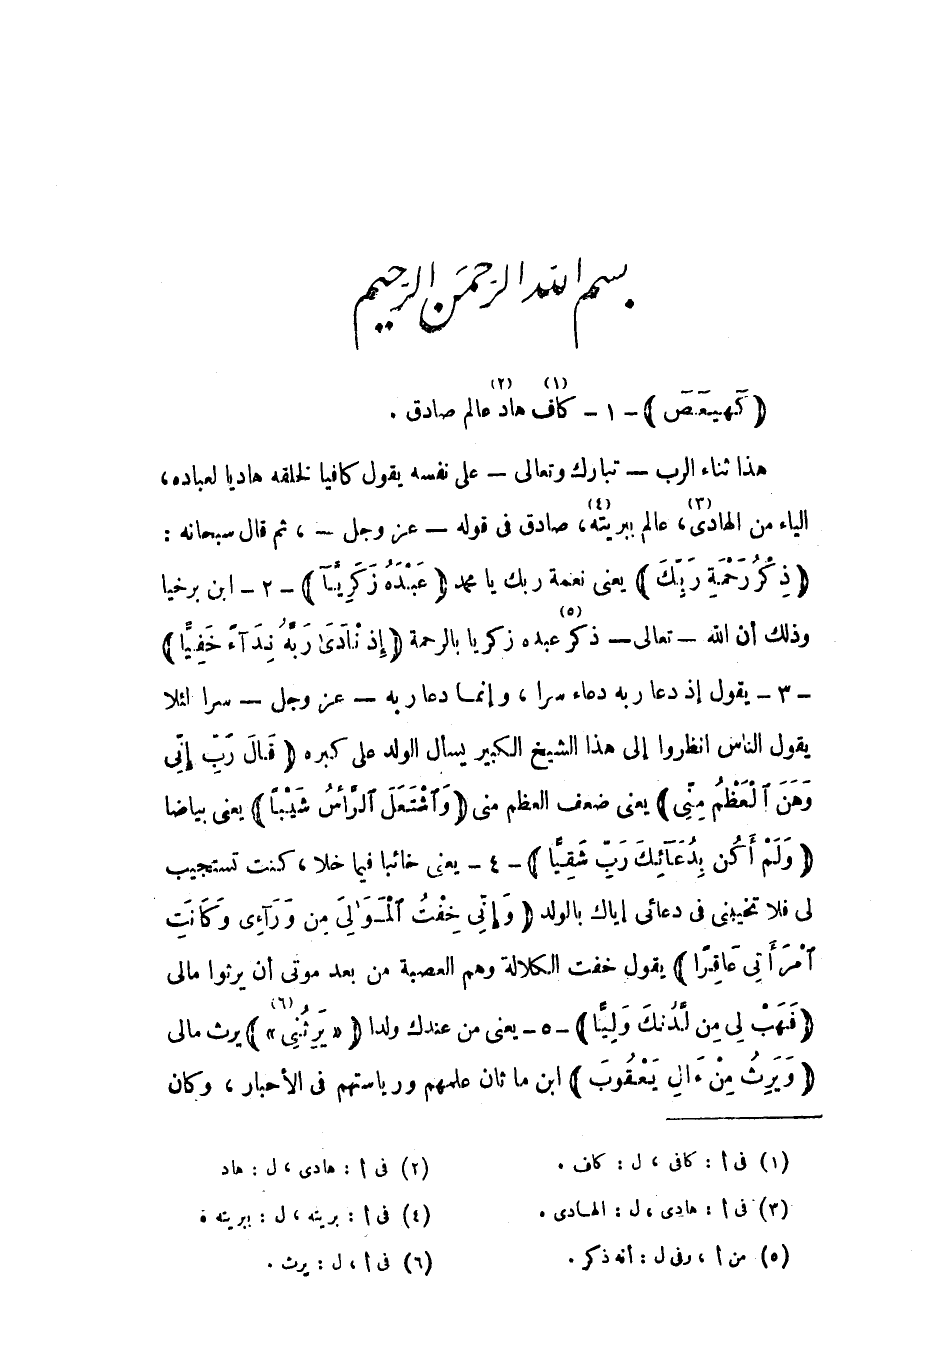 بسم الله الرحمن الرحيم
﴿ كَهيعَصَ ﴾ – ١ – كاف (١) هاد (٢) عالم صادق .
هذا ثناء الرب – تبارك وتعالى – على نفسه يقول كافيا لخلقه هاديا لعباده ،
الياء من الهادى (٣) ، عالم ببريته (٤) ، صادق فى قوله – عز وجل – ، ثم قال سبحانه :
﴿ ذِكْرُ رَحْمَةِ رَبِّكَ ﴾ يعنى نعمة ربك يا محمد ﴿ عَبْدَهُ زَكَرِيَّآ ﴾ – ٢ – ابن برخيا
وذلك أن الله – تعالى – ذكر (٥) عبده زكريا بالرحمة ﴿ إِذْ نَادَىٰ رَبَّهُ نِدَآءً خَفِيًّا ﴾
– ٣ – يقول إذ دعا ربه دعاء سرا ، وإنمـا دعا ربه – عز وجل – سرا لئلا
يقول الناس انظروا إلى هذا الشيخ الكبير يسأل الولد على كبره ﴿ قَالَ رَبِّ إِنِّى
وَهَنَ ٱلْعَظْمُ مِنِّى ﴾ يعنى ضعف العظم منى ﴿ وَٱشْتَعَلَ ٱلرَّأْسُ شَيْبًا ﴾ يعنى بياضا
﴿ وَلَمْ أَكُن بِدُعَآئِكَ رَبِّ شَقِيًّا ﴾ – ٤ – يعنى خائبا فيما خلا ، كنت تستجيب
لى فلا تخيبنى فى دعائى إياك بالولد ﴿ وَإِنِّى خِفْتُ ٱلْمَوَٰلِىَ مِن وَرَآءِى وَكَانَتِ
ٱمْرَأَتِى عَاقِرًا ﴾ يقول خفت الكلالة وهم العصبة من بعد موتى أن يرثوا مالى
﴿ فَهَبْ لِى مِن لَّدُنكَ وَلِيًّا ﴾ – ٥ – يعنى من عندك ولدا ﴿ « يَرِثُنِى (٦) » ﴾ يرث مالى
﴿ وَيَرِثُ مِنْ ءَالِ يَعْقُوبَ ﴾ ابن ماثان علمهم ورياستهم فى الأحبار ، وكان
(١) فى أ : كافى ، ل : كاف .
(٢) فى أ : هادى ، ل : هاد
(٣) فى أ : هادى ، ل : الهـادى .
(٤) فى أ : بريته ، ل : ببريته .
(٥) من أ ، وفى ل : أنه ذكر .
(٦) فى أ ، ل : يرث .